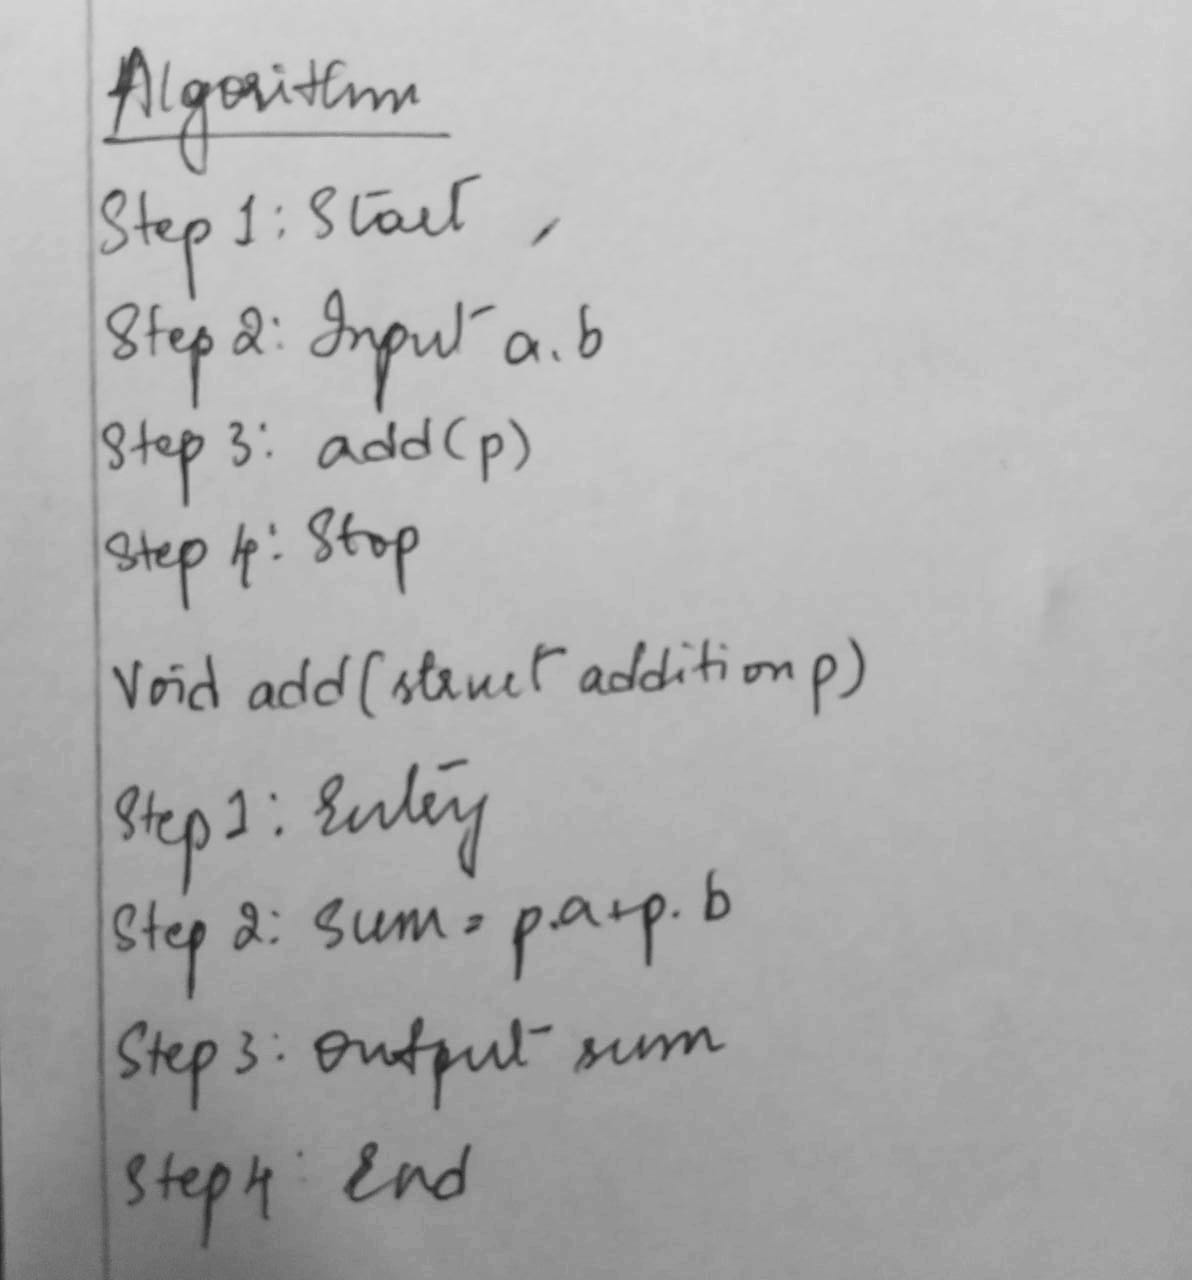 Algorithm
Step 1: Start
Step 2: Input a.b
Step 3: add(p)
Step 4: Stop
Void add(struct addition p)
Step 1: Entry
Step 2: Sum = p.a+p.b
Step 3: Output sum
Step 4: End